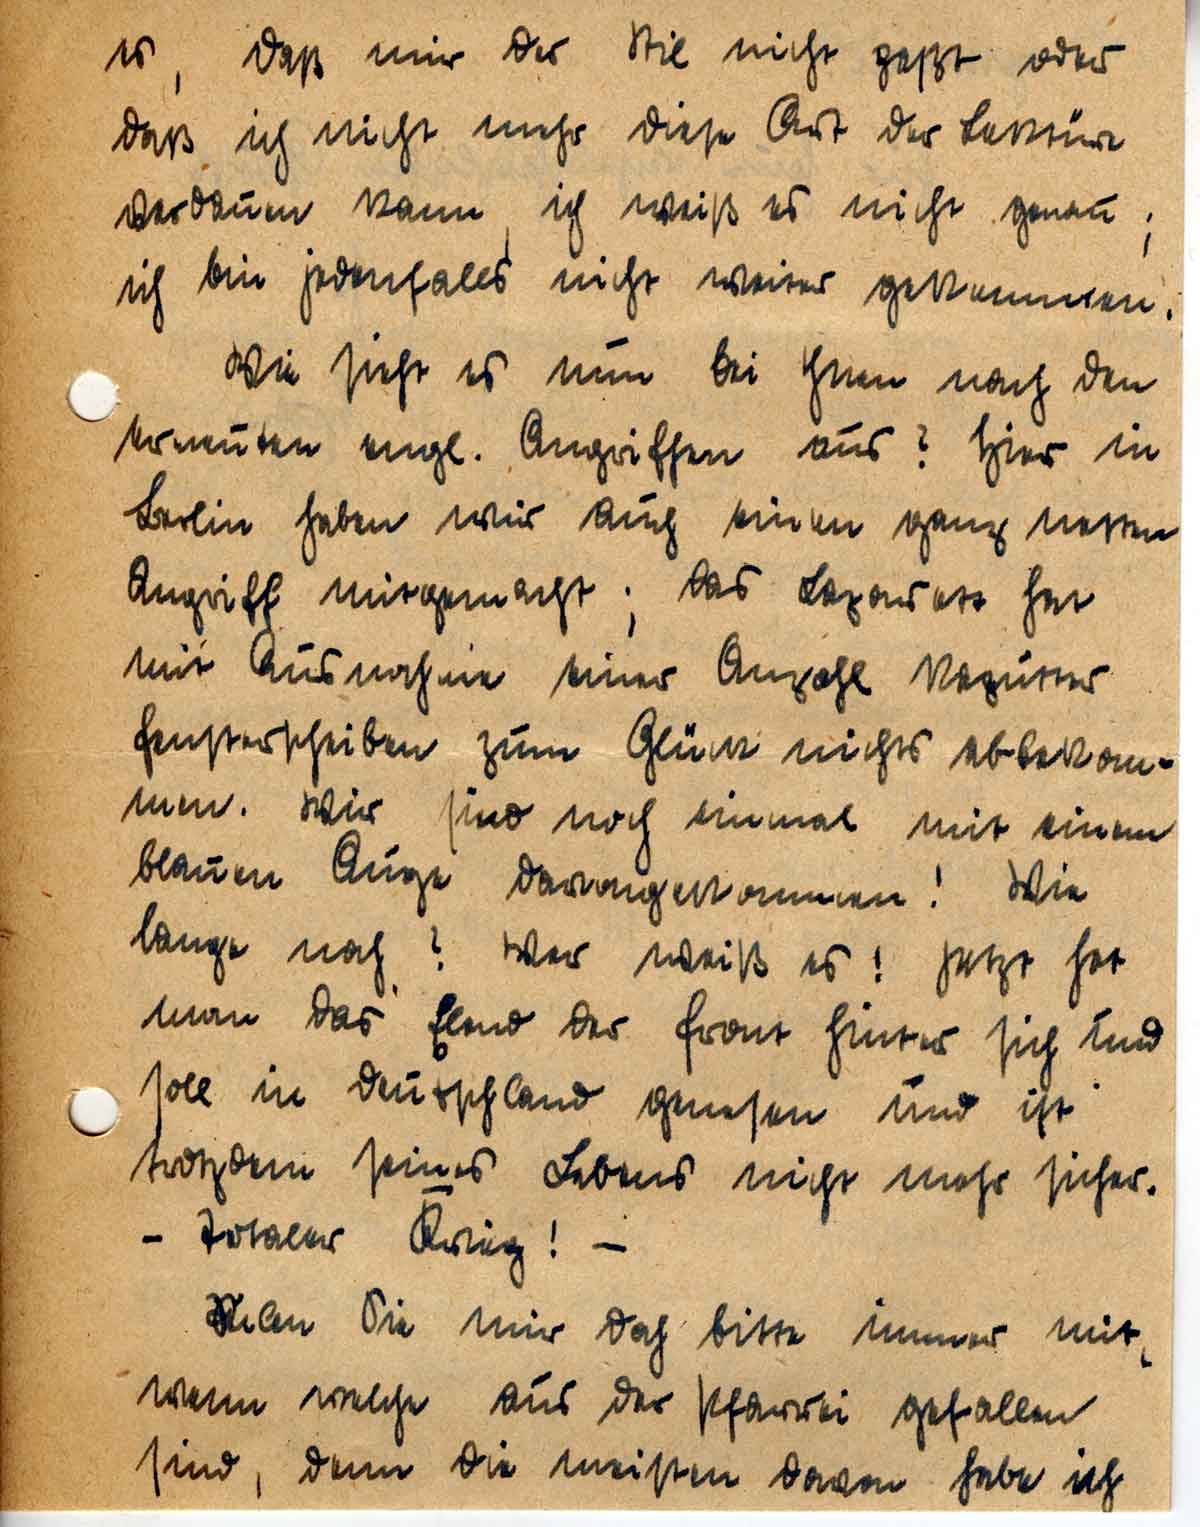 es, daß mir der Stil nicht paßt oder
daß ich nicht mehr diese Art der Lektüre
verdauen kann, ich weiß es nicht genau;
ich bin jedenfalls nicht weiter gekommen.
Wie sieht es nun bei Ihnen nach den
erneuten engl. Angriffen aus? Hier in
Berlin haben wir auch einen ganz netten
Angriff mitgemacht; das Lazarett hat
mit Ausnahme einer Anzahl kaputter
Fensterscheiben zum Glück nichts abbekom-
men. Wir sind noch einmal mit einem
blauen Auge davongekommen! Wie
lange noch? Wer weiß es! Jetzt hat
man das Elend der Front hinter sich und
soll in Deutschland genesen und ist
trotzdem seines Lebens nicht mehr sicher.
- Totaler Krieg! -
Teilen Sie mir doch bitte immer mit,
wenn welche aus der Pfarrei gefallen
sind, denn die meisten davon habe ich